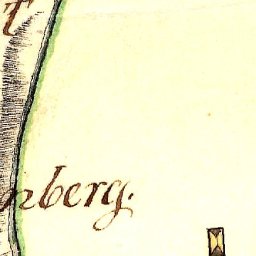 t
nberg.